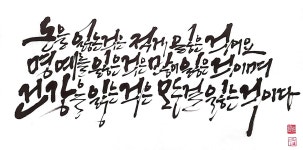 돈을 잃는것은 적게 잃은것이요
명예를 잃은것은 많이 잃은것이며
건강을 잃는것은 모든걸 잃는것이다